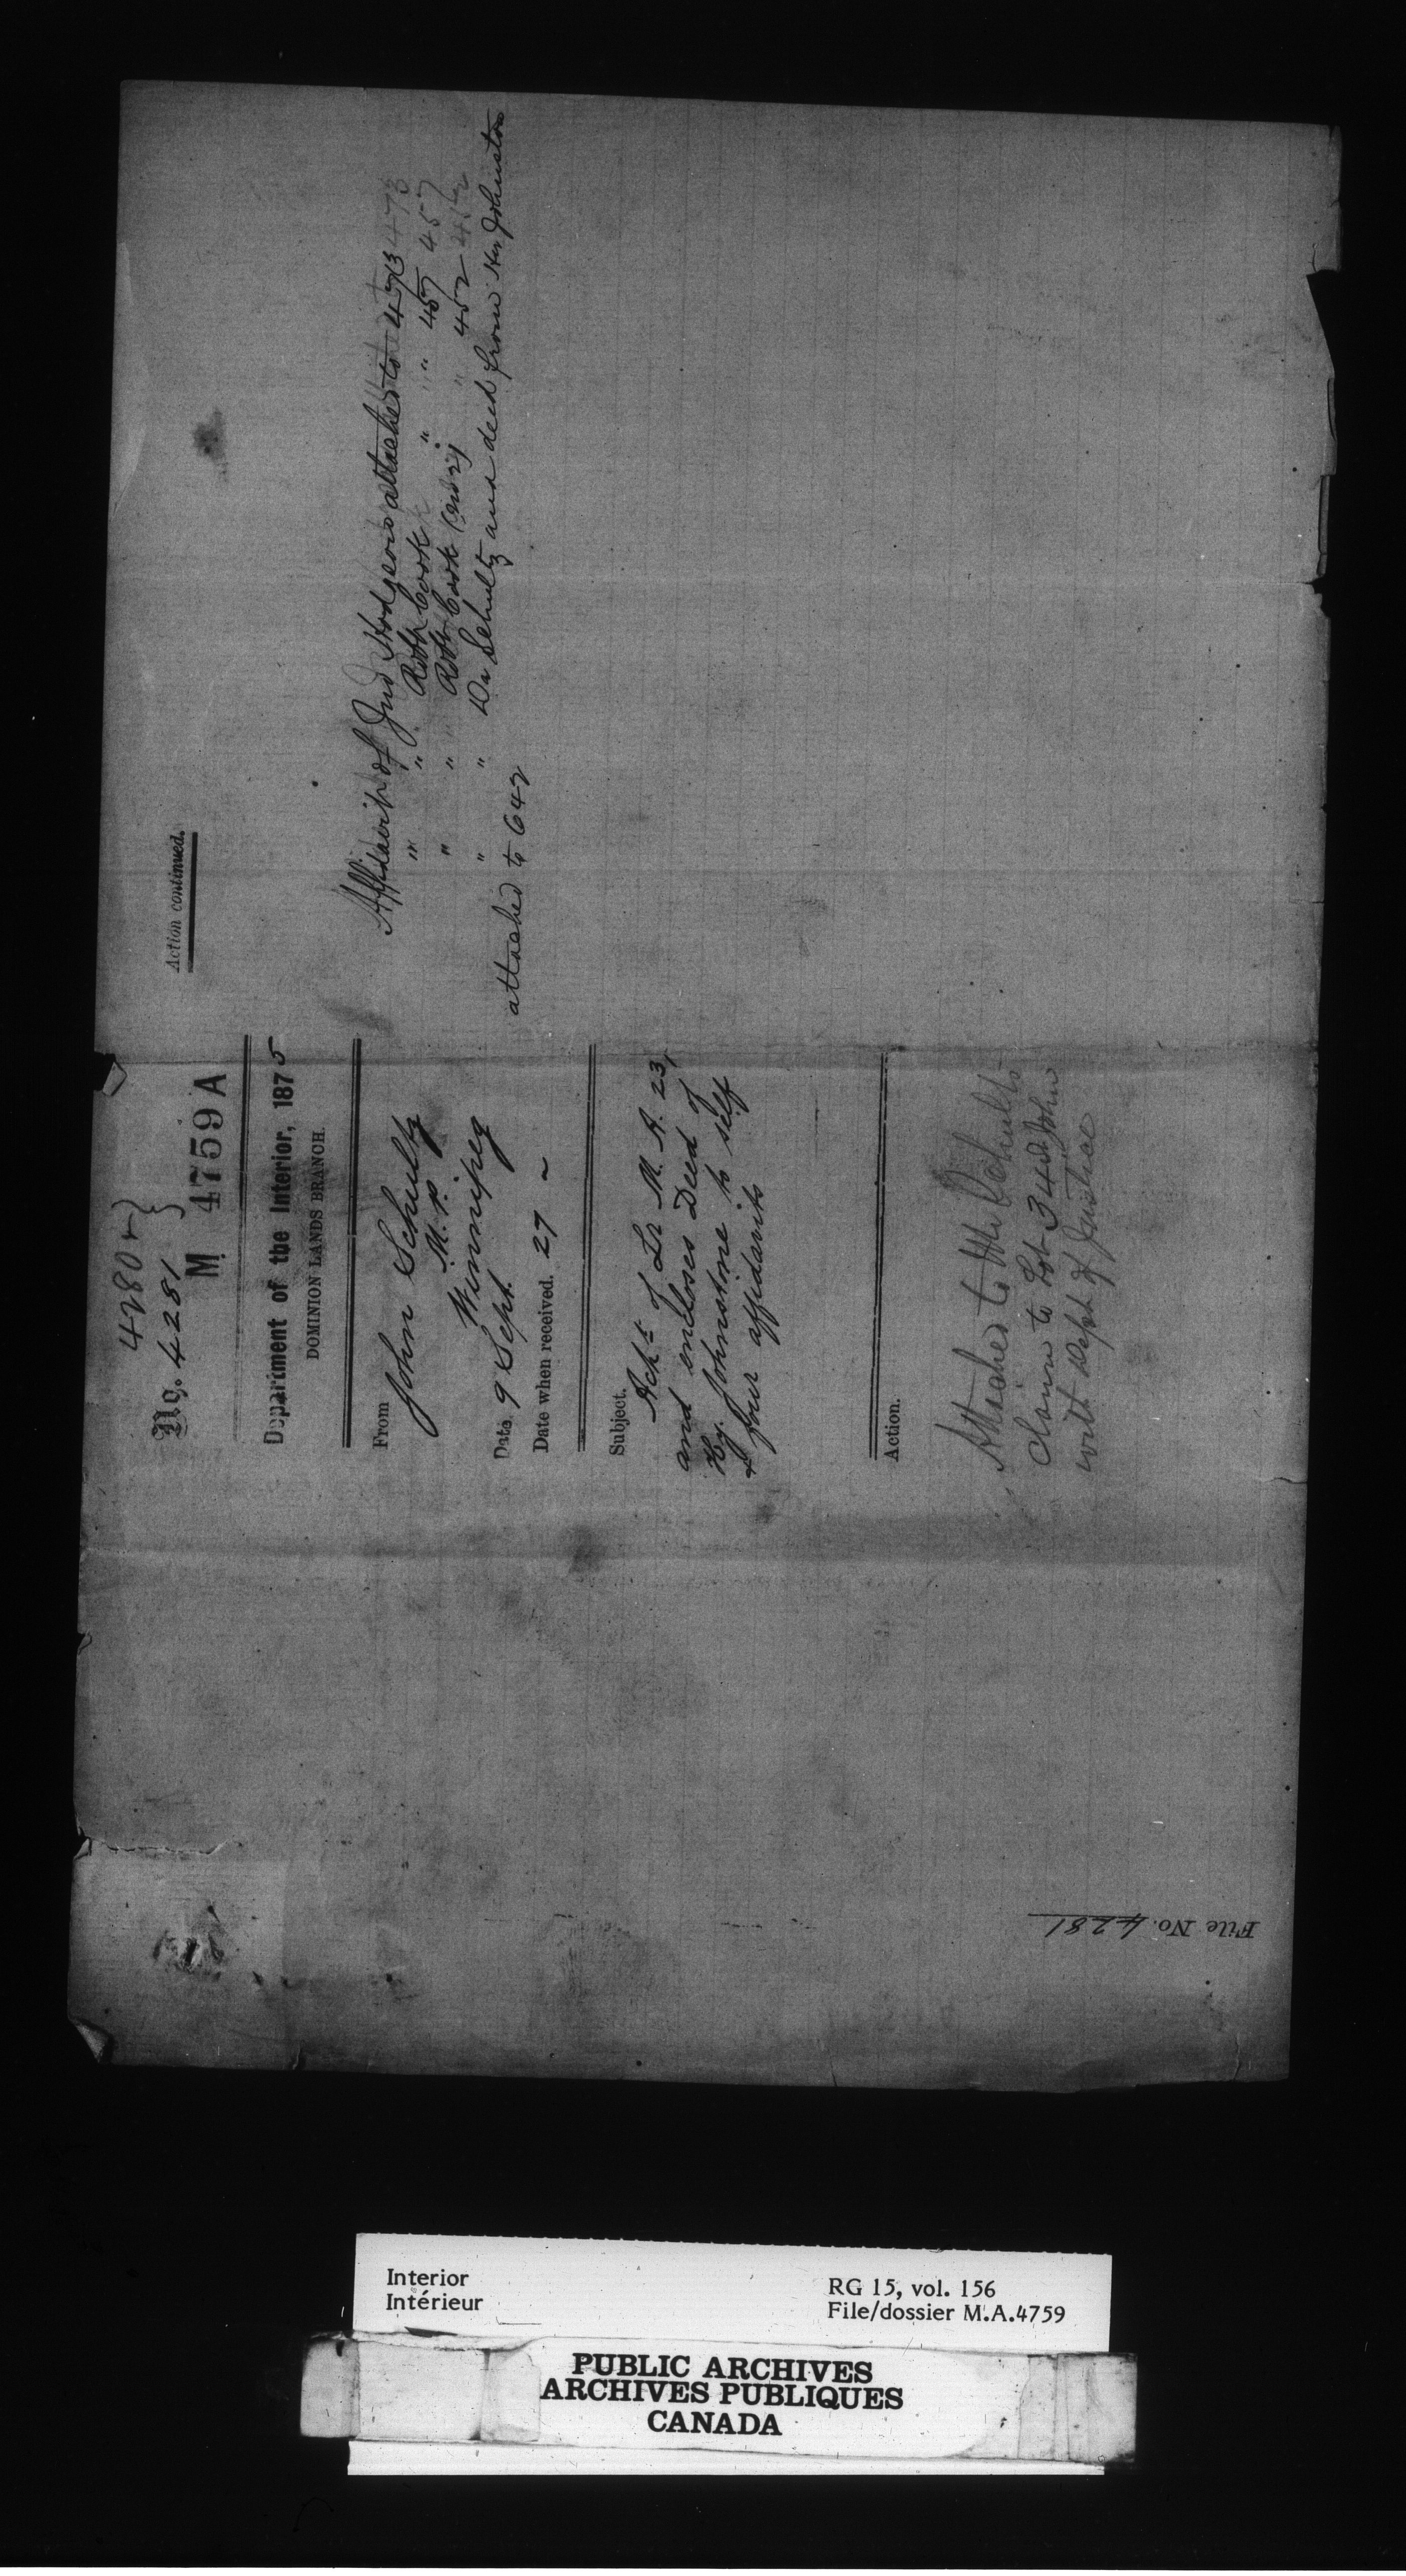 4280 + }
No. 4281 }
M 4759 A
Department of the Interior, 1875
DOMINION LANDS BRANCH.
From John Schultz
M.P.
Winnipeg
Date. 9 Sept.
Date when received. 27 ~
Subject.
Ackt of Lr M. A. 23,
and encloses Deed of
Hy. Johnstone to self
& four affidavits
Action.
Attached to Mr Schultz
claim to Lot 34 St John
with Dept of Justice
Action continued.
Affidavit of Jno Hodgson attached to 473 473
" " Robt Cook " " 457 457
" " Robt Cook " 452 452
" " Dr Schultz and deed from Hy Johnston
attached to 642
File No. 4281
Interior
Intérieur
RG 15, vol. 156
File/dossier M.A.4759
PUBLIC ARCHIVES
ARCHIVES PUBLIQUES
CANADA